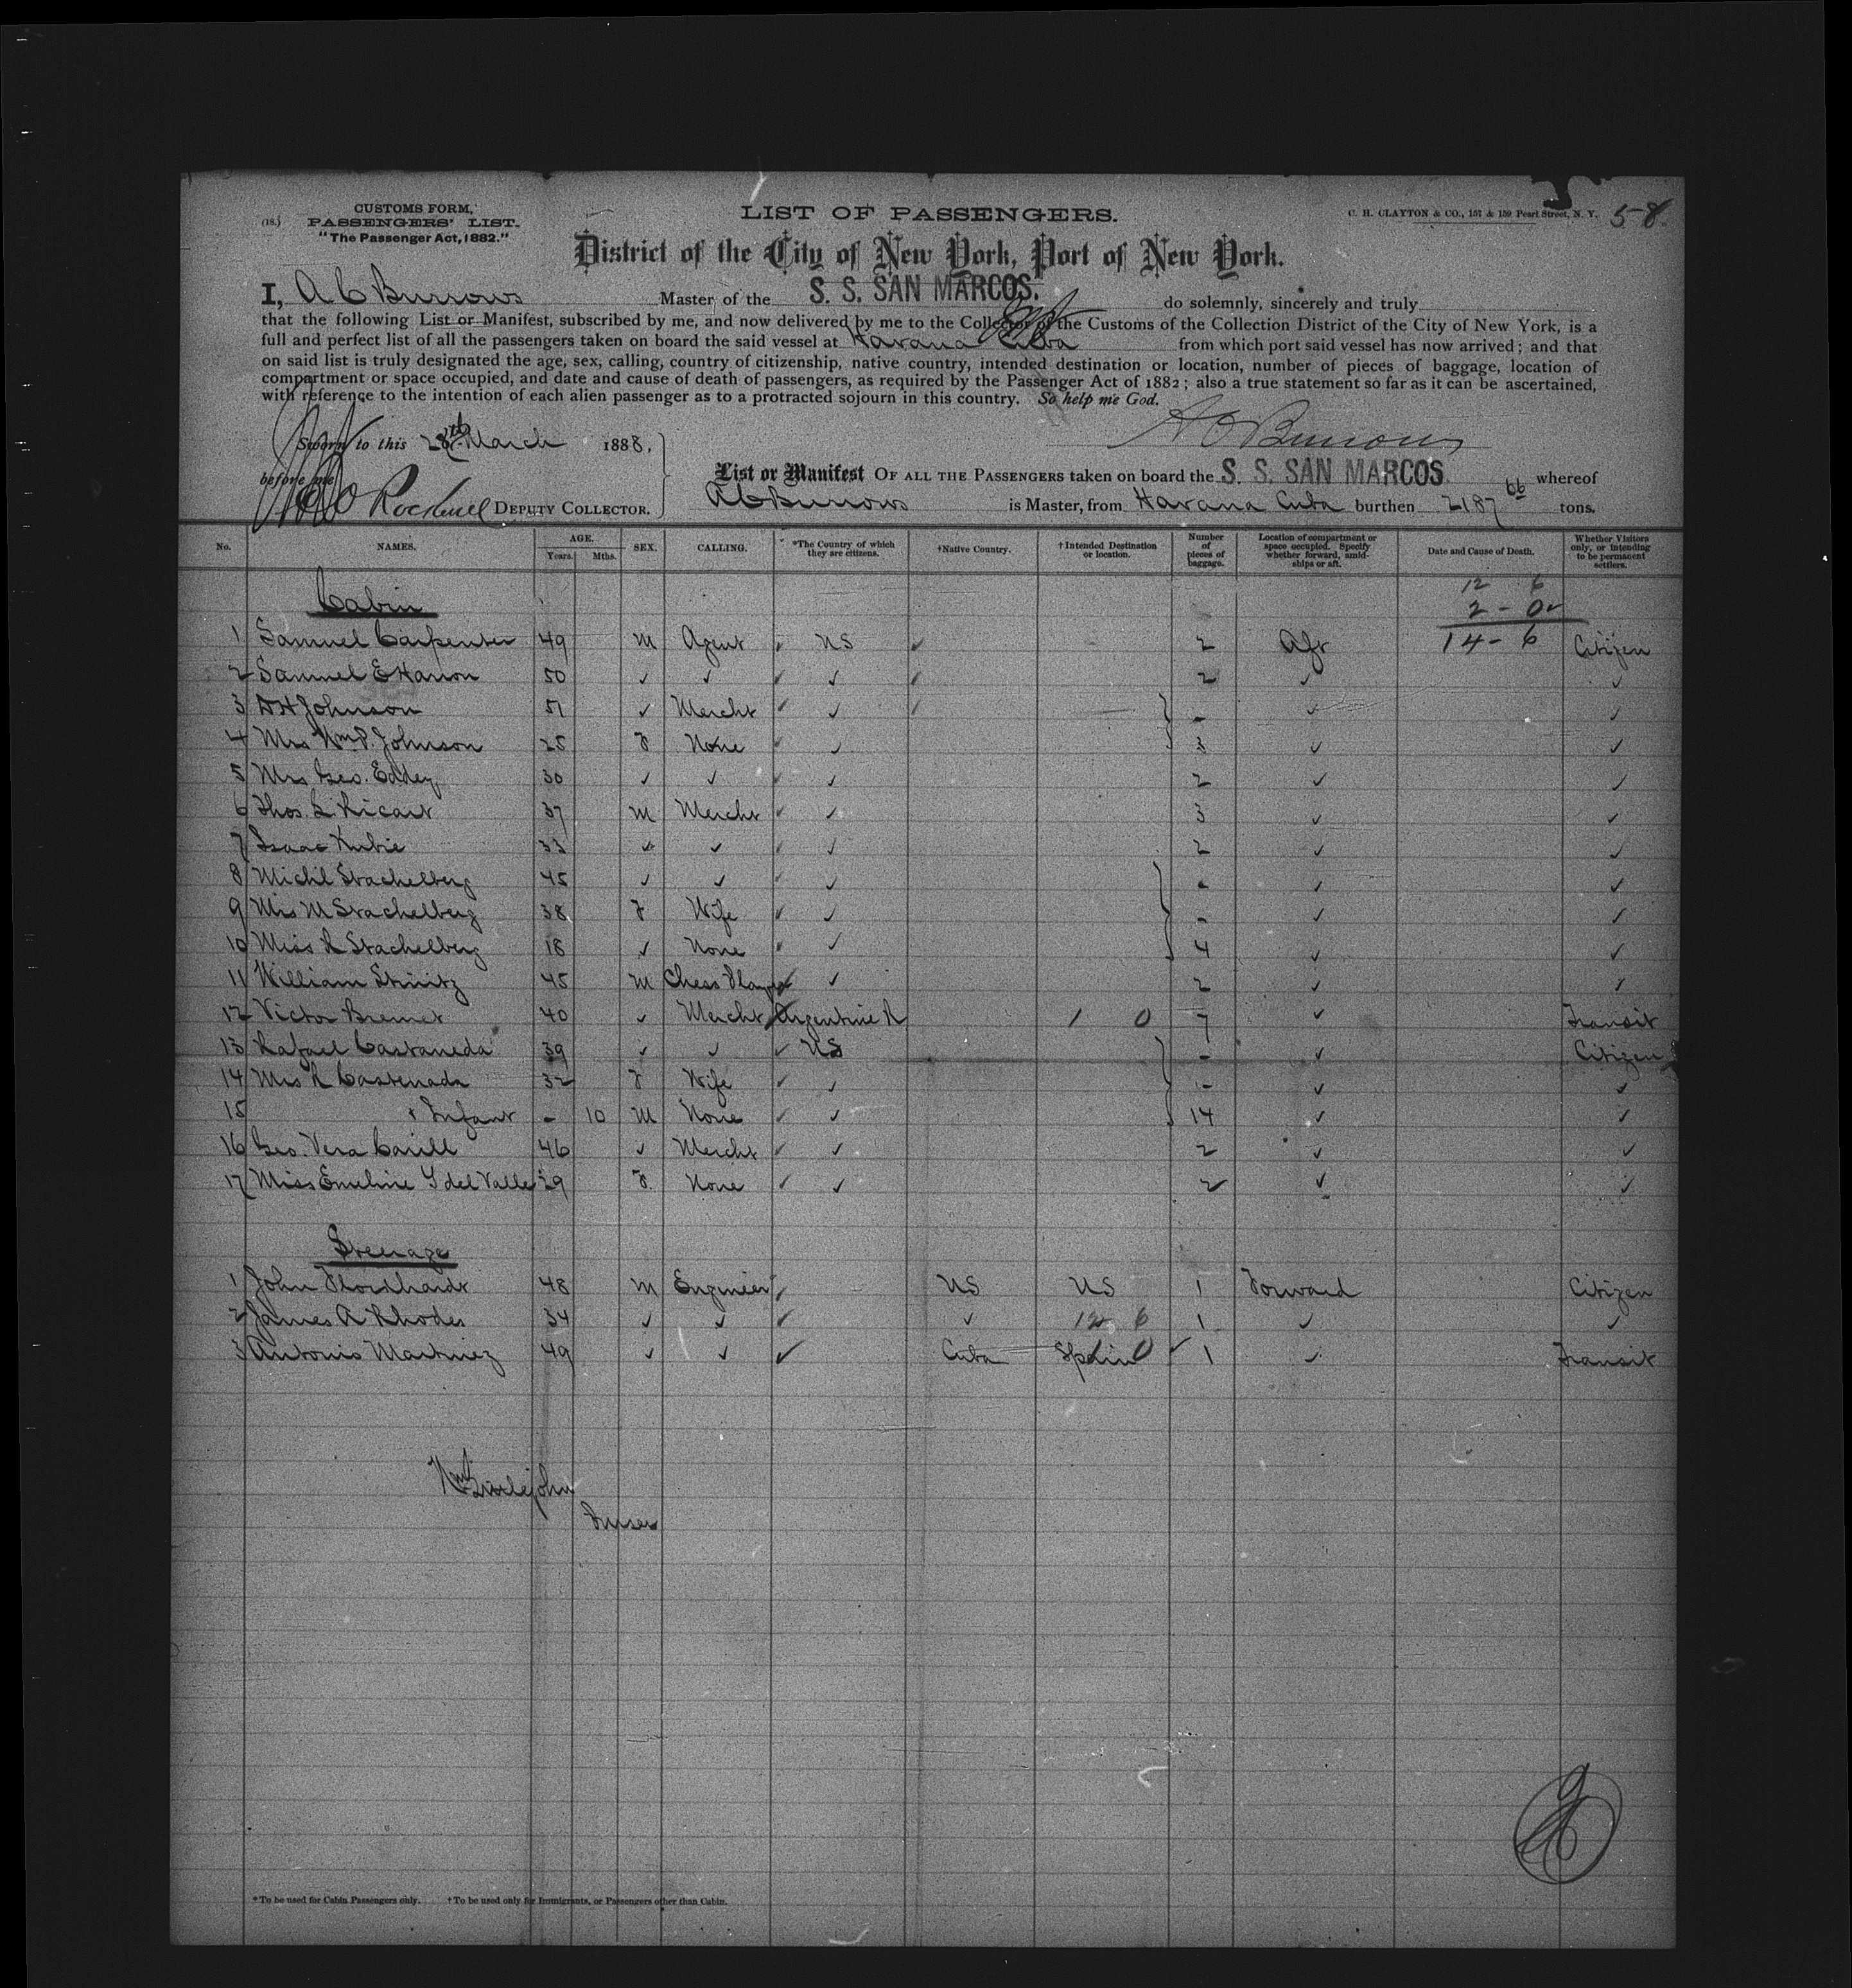 (18.)
CUSTOMS FORM,
PASSENGERS' LIST.
"The Passenger Act, 1882."
LIST OF PASSENGERS.
C. H. CLAYTON & CO., 157 & 159 Pearl Street, N. Y.
58.
District of the City of New York, Port of New York.
I, A C Burrows Master of the S. S. SAN MARCOS. do solemnly, sincerely and truly
that the following List or Manifest, subscribed by me, and now delivered by me to the Collector of the Customs of the Collection District of the City of New York, is a
full and perfect list of all the passengers taken on board the said vessel at Havana Cuba from which port said vessel has now arrived; and that
on said list is truly designated the age, sex, calling, country of citizenship, native country, intended destination or location, number of pieces of baggage, location of
compartment or space occupied, and date and cause of death of passengers, as required by the Passenger Act of 1882; also a true statement so far as it can be ascertained,
with reference to the intention of each alien passenger as to a protracted sojourn in this country. So help me God.
A C Burrows
Sworn to this 28th March 1888,
before me
Rockwell DEPUTY COLLECTOR.
List or Manifest OF ALL THE PASSENGERS taken on board the S. S. SAN MARCOS whereof
A C Burrows is Master, from Havana Cuba burthen 2187 66 tons.
No. NAMES. AGE. Years. Mths. SEX. CALLING. *The Country of which they are citizens. †Native Country. †Intended Destination or location. Number of pieces of baggage. Location of compartment or space occupied. Specify whether forward, amidships or aft. Date and Cause of Death. Whether Visitors only, or intending to be permanent settlers.
12 6
Cabin 2 - 0
1 Samuel Carpenter 49 M Agent ✓ US ✓ 2 Aft 14 - 6 Citizen
2 Samuel E Hanon 50 ✓ ✓ ✓ ✓ ✓ 2 ✓ ✓
3 A H Johnson 51 ✓ Mercht ✓ ✓ ✓ - ✓ ✓
4 Mrs Wm P. Johnson 25 F None ✓ ✓ 3 ✓ ✓
5 Mrs Geo. Eddey 30 ✓ ✓ ✓ ✓ 2 ✓ ✓
6 Thos. L. Ricart 37 M Mercht ✓ ✓ 3 ✓ ✓
7 Isaac Kubie 33 ✓ ✓ ✓ ✓ 2 ✓ ✓
8 Michl Stachelberg 45 ✓ ✓ ✓ ✓ - ✓ ✓
9 Mrs M Stachelberg 38 F Wife ✓ ✓ - ✓ ✓
10 Miss R Stachelberg 18 ✓ None ✓ ✓ 4 ✓ ✓
11 William Stinitz 45 M Chess Player ✓ ✓ 2 ✓ ✓
12 Victor Bremer 40 ✓ Mercht Argentine R 1 0 7 ✓ Transit
13 Rafael Castaneda 39 ✓ ✓ ✓ US - ✓ Citizen
14 Mrs R Castenada 32 F Wife ✓ ✓ - ✓ ✓
15 + Infant - 10 M None ✓ ✓ 14 ✓ ✓
16 Geo. Vera Carill 46 ✓ Mercht ✓ ✓ 2 ✓ ✓
17 Miss Emeline Y del Valle 29 F. None ✓ ✓ 2 ✓ ✓
Steerage
1 John 48 M Engineer ✓ US US 1 Forward Citizen
2 James A Rhodes 34 ✓ ✓ ✓ ✓ 12 6 1 ✓ ✓
3 Antonio Martinez 49 ✓ ✓ ✓ Cuba Spain 1 0 ✓ 1 ✓ Transit
Wm Littlejohn
Purser
*To be used for Cabin Passengers only. †To be used only for Immigrants, or Passengers other than Cabin.